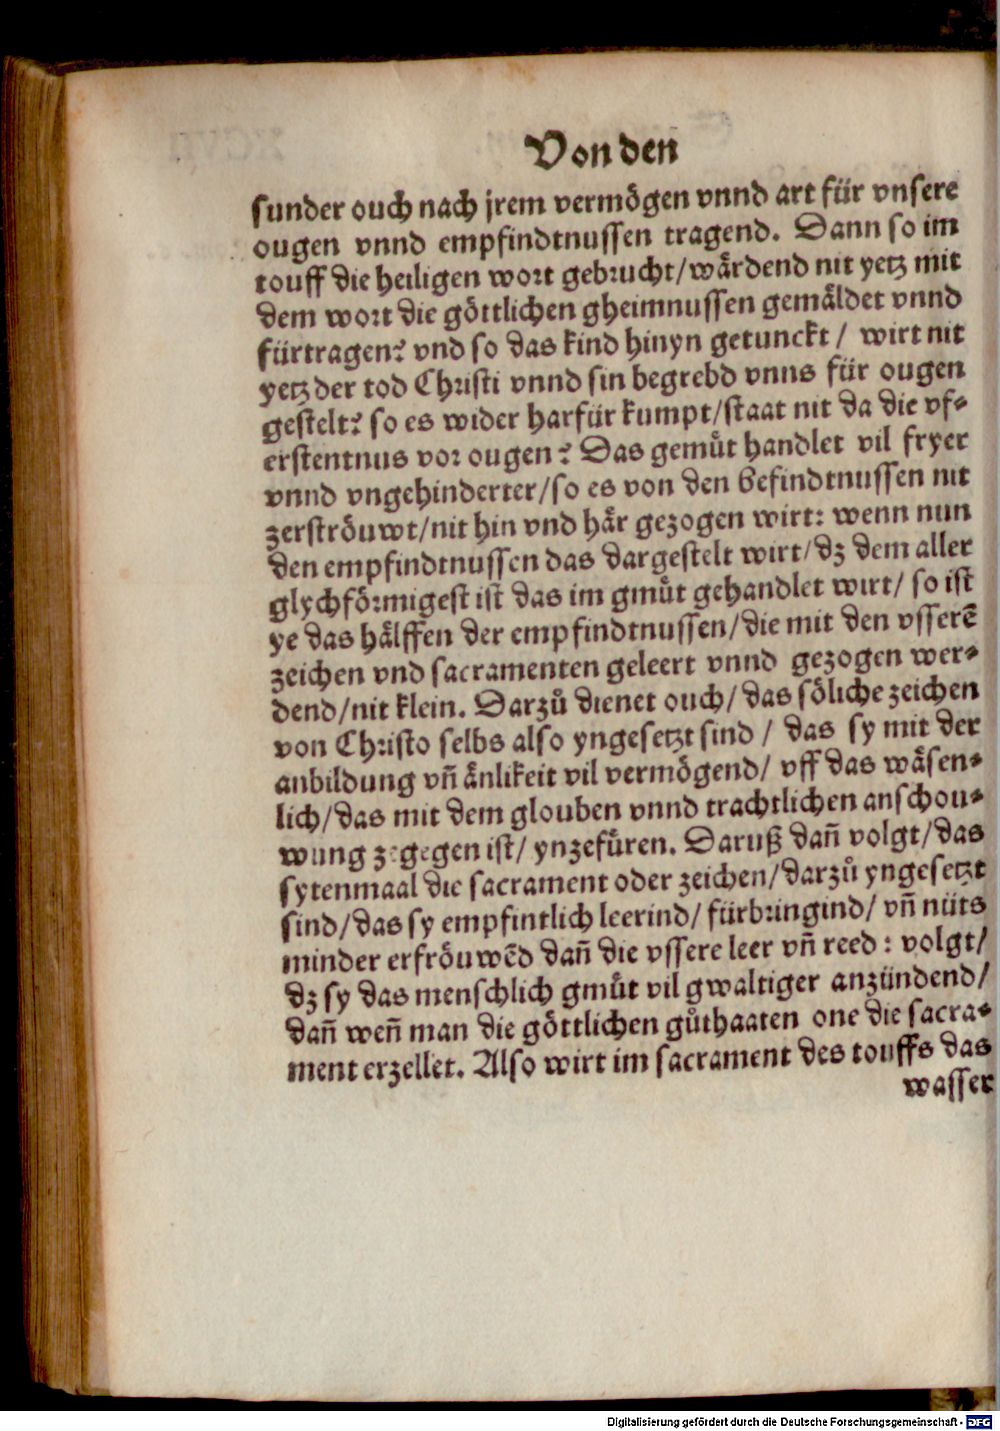 Von den
sunder ouch nach jrem vermögen vnnd art für vnsere
ougen vnnd empfindtnussen tragend. Dann so im
touff die heiligen wort gebrucht/wårdend nit yetz mit
dem wort die göttlichen gheimnussen gemåldet vnnd
fürtragen? vnd so das kind hinyn getunckt / wirt nit
yetz der tod Christi vnnd sin begrebd vnns für ougen
gestelt? so es wider harfür kumpt/staat nit da die vf⸗
erstentnus vor ougen? Das gemůt handlet vil fryer
vnnd vngehinderter/so es von den befindtnussen nit
zerströuwt/nit hin vnd hår gezogen wirt: wenn nun
den empfindtnussen das dargestelt wirt/dz dem aller
glychförmigest ist das im gmůt gehandlet wirt/ so ist
ye das hålffen der empfindtnussen/die mit den vsserē
zeichen vnd sacramenten geleert vnnd gezogen wer⸗
dend/nit klein. Darzů dienet ouch/ das söliche zeichen
von Christo selbs also yngesetzt sind / das sy mit der
anbildung vñ ånlikeit vil vermögend/ vff das wåsen⸗
lich/das mit dem glouben vnnd trachtlichen anschou⸗
wung zegegen ist/ ynzefůren. Daruß dañ volgt/das
sytenmaal die sacrament oder zeichen/darzů yngesetzt
sind/das sy empfintlich leerind/ fürbringind/ vñ nüts
minder erfröuwēd dañ die vssere leer vñ reed: volgt/
dz sy das menschlich gmůt vil gwaltiger anzündend/
dañ weñ man die göttlichen gůthaaten one die sacra⸗
ment erzellet. Also wirt im sacrament des touffs das
wasser
Digitalisierung gefördert durch die Deutsche Forschungsgemeinschaft - DFG